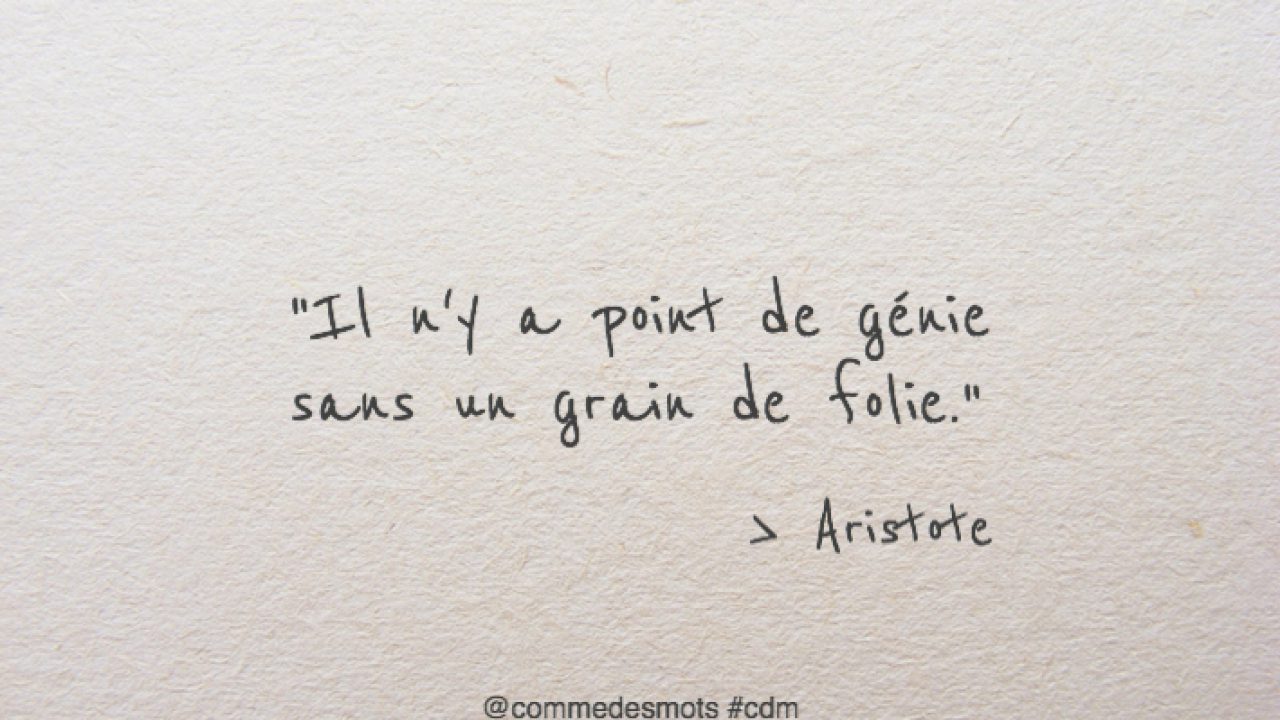 "Il n'y a point de génie
sans un grain de folie."
> Aristote
@commedesmots #cdm